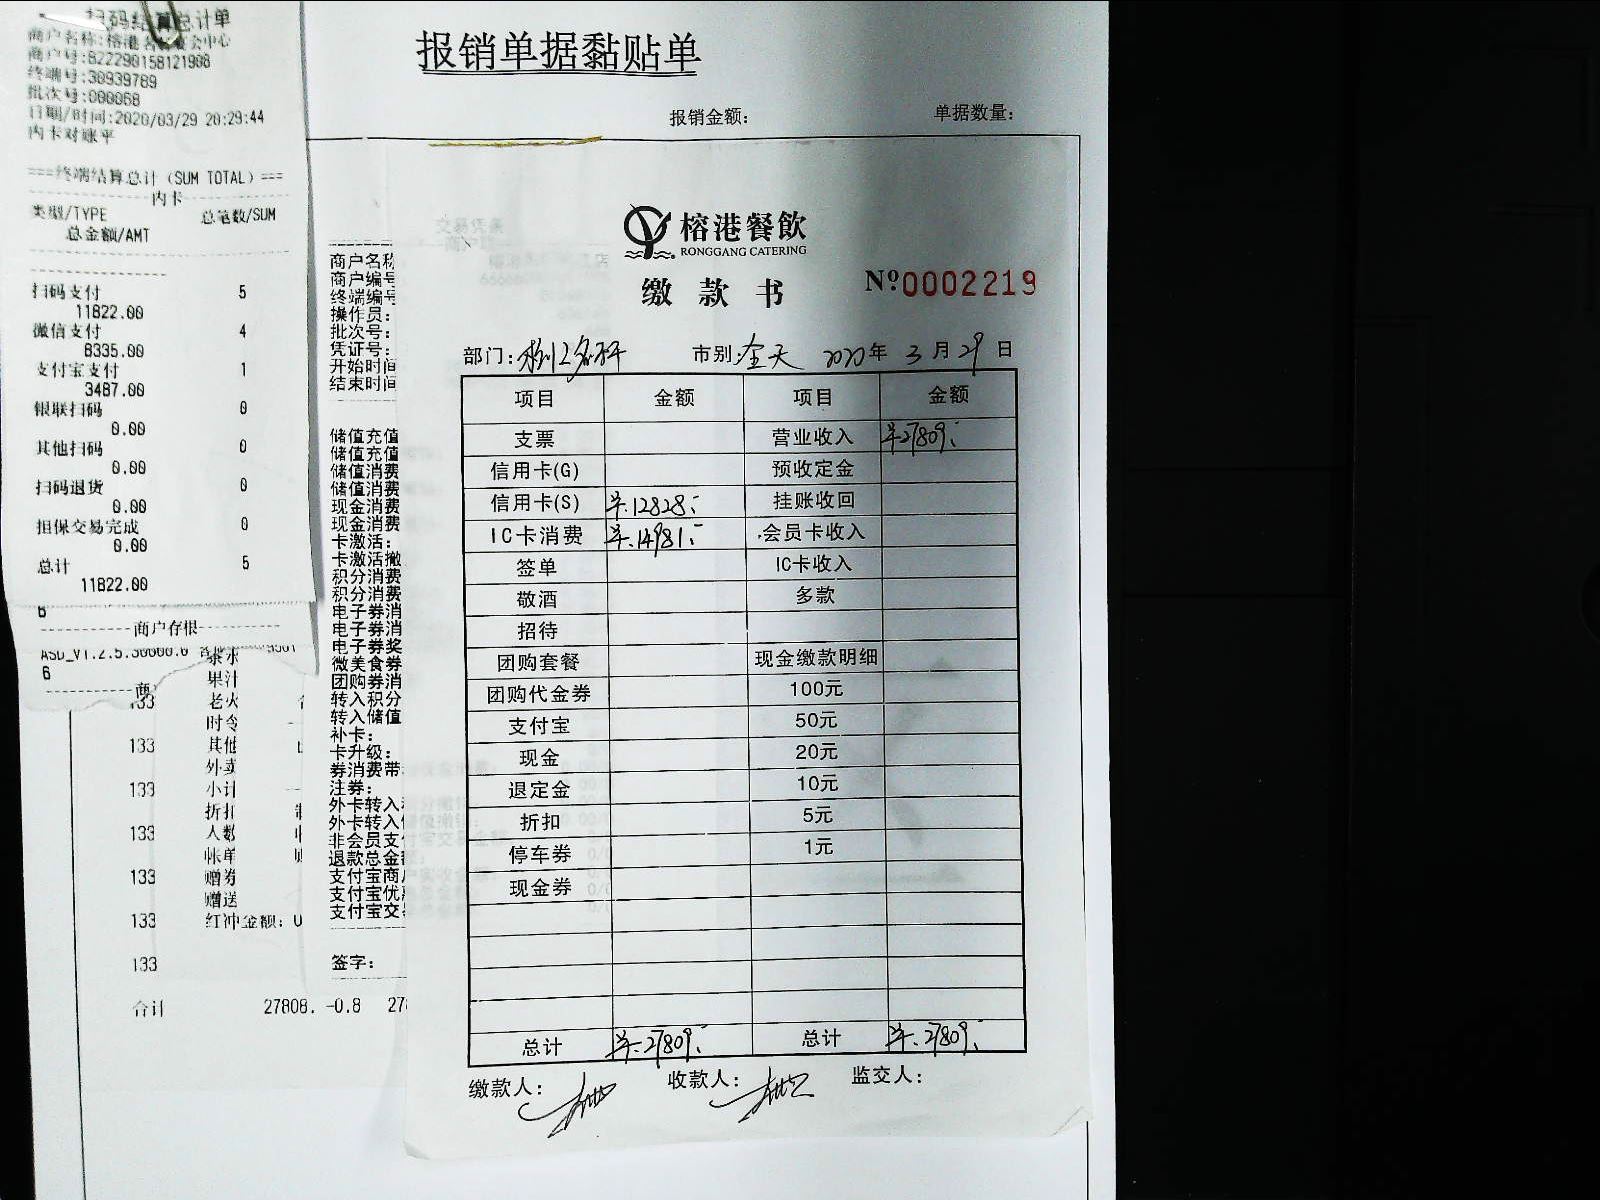 扫码结算总计单
商户名称:榕港名轩宴会中心
商户号:822290158121908
终端号:30939789
批次号:000068
日期/时间:2020/03/29 20:29:44
内卡对账平
===终端结算总计(SUM TOTAL)===
内卡
类型/TYPE 总笔数/SUM
总金额/AMT
扫码支付 5
11822.00
微信支付 4
8335.00
支付宝支付 1
3487.00
银联扫码 0
0.00
其他扫码 0
0.00
扫码退货 0
0.00
担保交易完成 0
0.00
总计 5
11822.00
6
商户存根
ASD_V1.2.5.30000.0
6
商
133
茶水
果汁
老火
时令
133 其他
外卖
133 小计
折扣
133 人数
帐单
133 赠券
赠送
133 红冲金额:
133
合计 27808. -0.8 27
商户名称
商户编号
终端编号
操作员:
批次号:
凭证号:
开始时间
结束时间
储值充值
储值充值
储值消费
储值消费
现金消费
现金消费
卡激活:
卡激活撤
积分消费
积分消费
电子券消
电子券消
电子券奖
微美食券
团购券消
转入积分
转入储值
补卡:
卡升级:
券消费带
注券:
外卡转入
外卡转入
非会员支
退款总金
支付宝商
支付宝优
支付宝交
签字:
报销单据黏贴单
报销金额: 单据数量:
榕港餐飲
RONGGANG CATERING
缴款书 Nº0002219
部门: 市别:全天 2020年3月29日
项目 金额 项目 金额
支票 营业收入 ¥27809.
信用卡(G) 预收定金
信用卡(S) ¥.12828. 挂账收回
IC卡消费 ¥.14981. 会员卡收入
签单 IC卡收入
敬酒 多款
招待
团购套餐 现金缴款明细
团购代金券 100元
支付宝 50元
现金 20元
退定金 10元
折扣 5元
停车券 1元
现金券
总计 ¥.27809. 总计 ¥.27809.
缴款人: 收款人: 监交人: